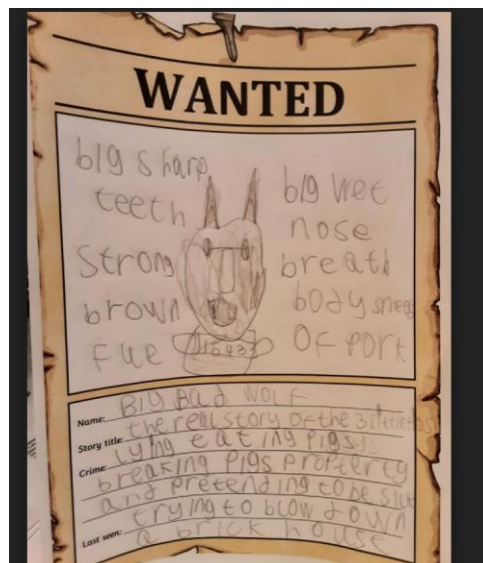 WANTED
big sharp
teeth
strong
brown
fue
big wet
nose
breath
body smells
of pork
15432
Name: Big Bad Wolf
Story title: the real story of the 3 little pigs
Crime: lying eating pigs
breaking pigs propterty
and pretending to be sick
trying to blow down
Last seen: a brick house